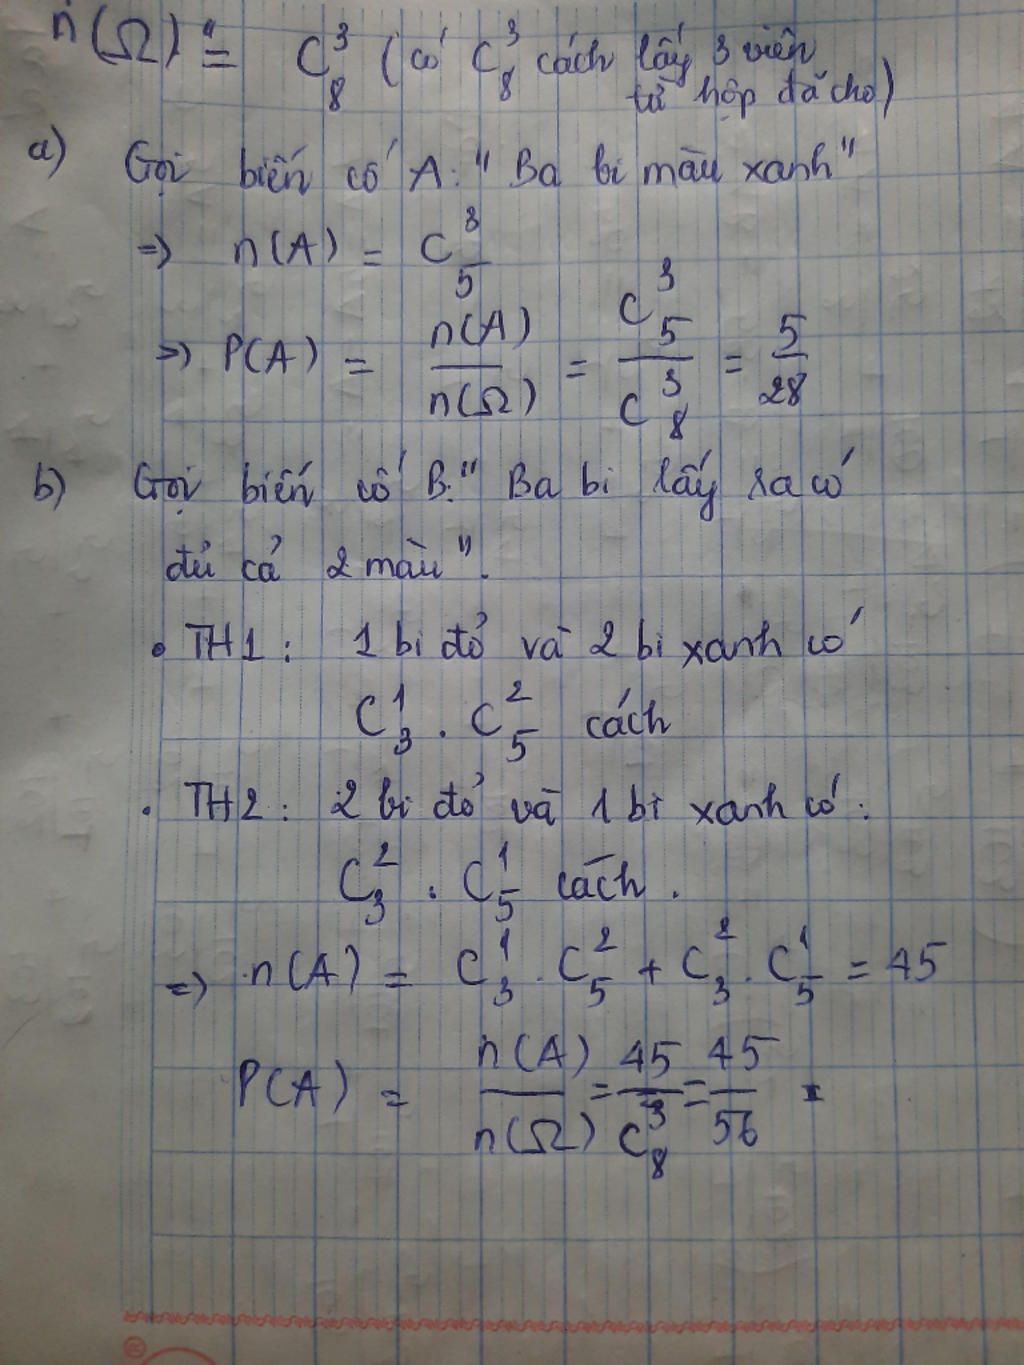 n(Ω) = C₈³ (có C₈³ cách lấy 3 viên
từ hộp đã cho)
a) Gọi biến cố A: " Ba bi màu xanh"
=> n(A) = C₅³
=> P(A) = n(A)/n(Ω) = C₅³/C₈³ = 5/28
b) Gọi biến cố B: " Ba bi lấy ra có
đủ cả 2 màu".
• TH1: 1 bi đỏ và 2 bi xanh có
C₃¹ . C₅² cách
• TH2: 2 bi đỏ và 1 bi xanh có:
C₃² . C₅¹ cách.
=> n(A) = C₃¹ . C₅² + C₃² . C₅¹ = 45
P(A) = n(A)/n(Ω) = 45/C₈³ = 45/56.